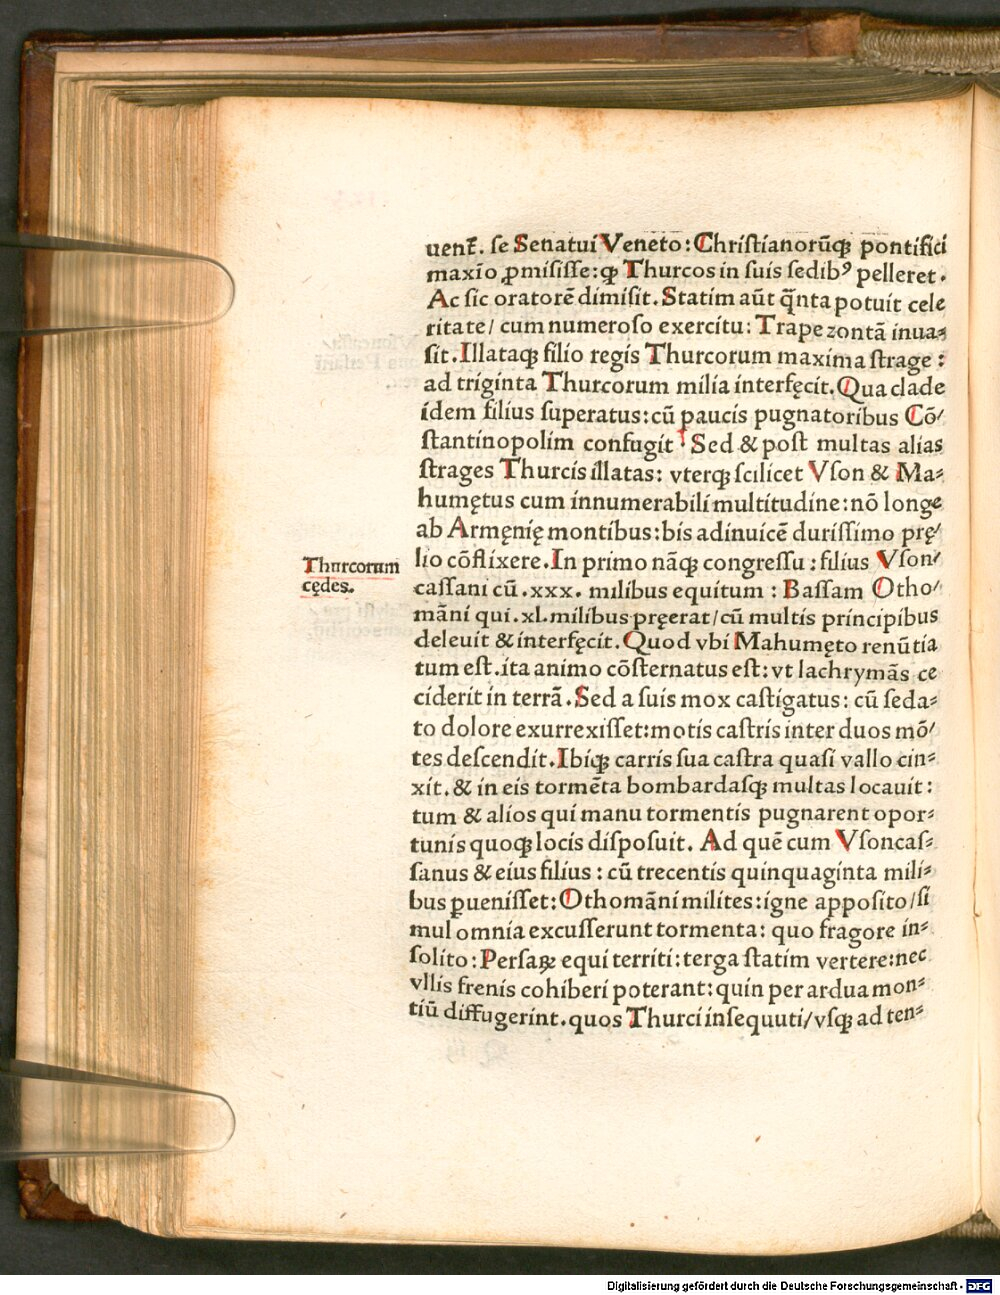 uent̃. se Senatui Veneto: Christianorūqꝫ pontifici
maxīo ꝓmisisse: ꝙ Thurcos in suis sedibꝰ pelleret.
Ac sic oratorē dimisit. Statim aūt q̃nta potuit cele
ritate/ cum numeroso exercitu: Trapezontā inua⸗
sit. Illataqꝫ filio regis Thurcorum maxima strage:
ad triginta Thurcorum milia interfęcit. Qua clade
idem filius superatus: cū paucis pugnatoribus Cō/
stantinopolim confugit. Sed & post multas alias
strages Thurcis illatas: vterqꝫ scilicet Vson & Ma⸗
humętus cum innumerabili multitudine: nō longe
ab Armęnię montibus: bis adinuicē durissimo prę/
lio cōflixere. In primo nāqꝫ congressu: filius Vson/
cassani cū .xxx. milibus equitum: Bassam Otho/
māni qui .xl. milibus pręerat/ cū multis principibus
deleuit & interfęcit. Quod vbi Mahumęto renūtia
tum est. ita animo cōsternatus est: vt lachrymās ce
ciderit in terrā. Sed a suis mox castigatus: cū seda⸗
to dolore exurrexisset: motis castris inter duos mō/
tes descendit. Ibiqꝫ carris sua castra quasi vallo cin⸗
xit. & in eis tormēta bombardasqꝫ multas locauit:
tum & alios qui manu tormentis pugnarent opor⸗
tunis quoqꝫ locis disposuit. Ad quē cum Vsoncas⸗
sanus & eius filius: cū trecentis quinquaginta mili⸗
bus ꝑuenisset: Othomāni milites: igne apposito/ si
mul omnia excusserunt tormenta: quo fragore in⸗
solito: Persaꝝ equi territi: terga statim vertere: nec
vllis frenis cohiberi poterant: quin per ardua mon⸗
tiū diffugerint. quos Thurci insequuti/ vsqꝫ ad ten⸗
Thurcorum
cędes.
Digitalisierung gefördert durch die Deutsche Forschungsgemeinschaft - DFG